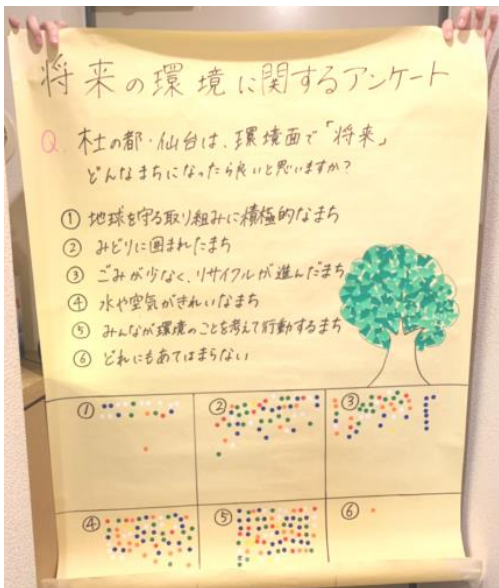 将来の環境に関するアンケート
Q. 杜の都・仙台は、環境面で「将来」
どんなまちになったら良いと思いますか?
① 地球を守る取り組みに積極的なまち
② みどりに囲まれたまち
③ ごみが少なく、リサイクルが進んだまち
④ 水や空気がきれいなまち
⑤ みんなが環境のことを考えて行動するまち
⑥ どれにもあてはまらない
① ② ③
④ ⑤ ⑥